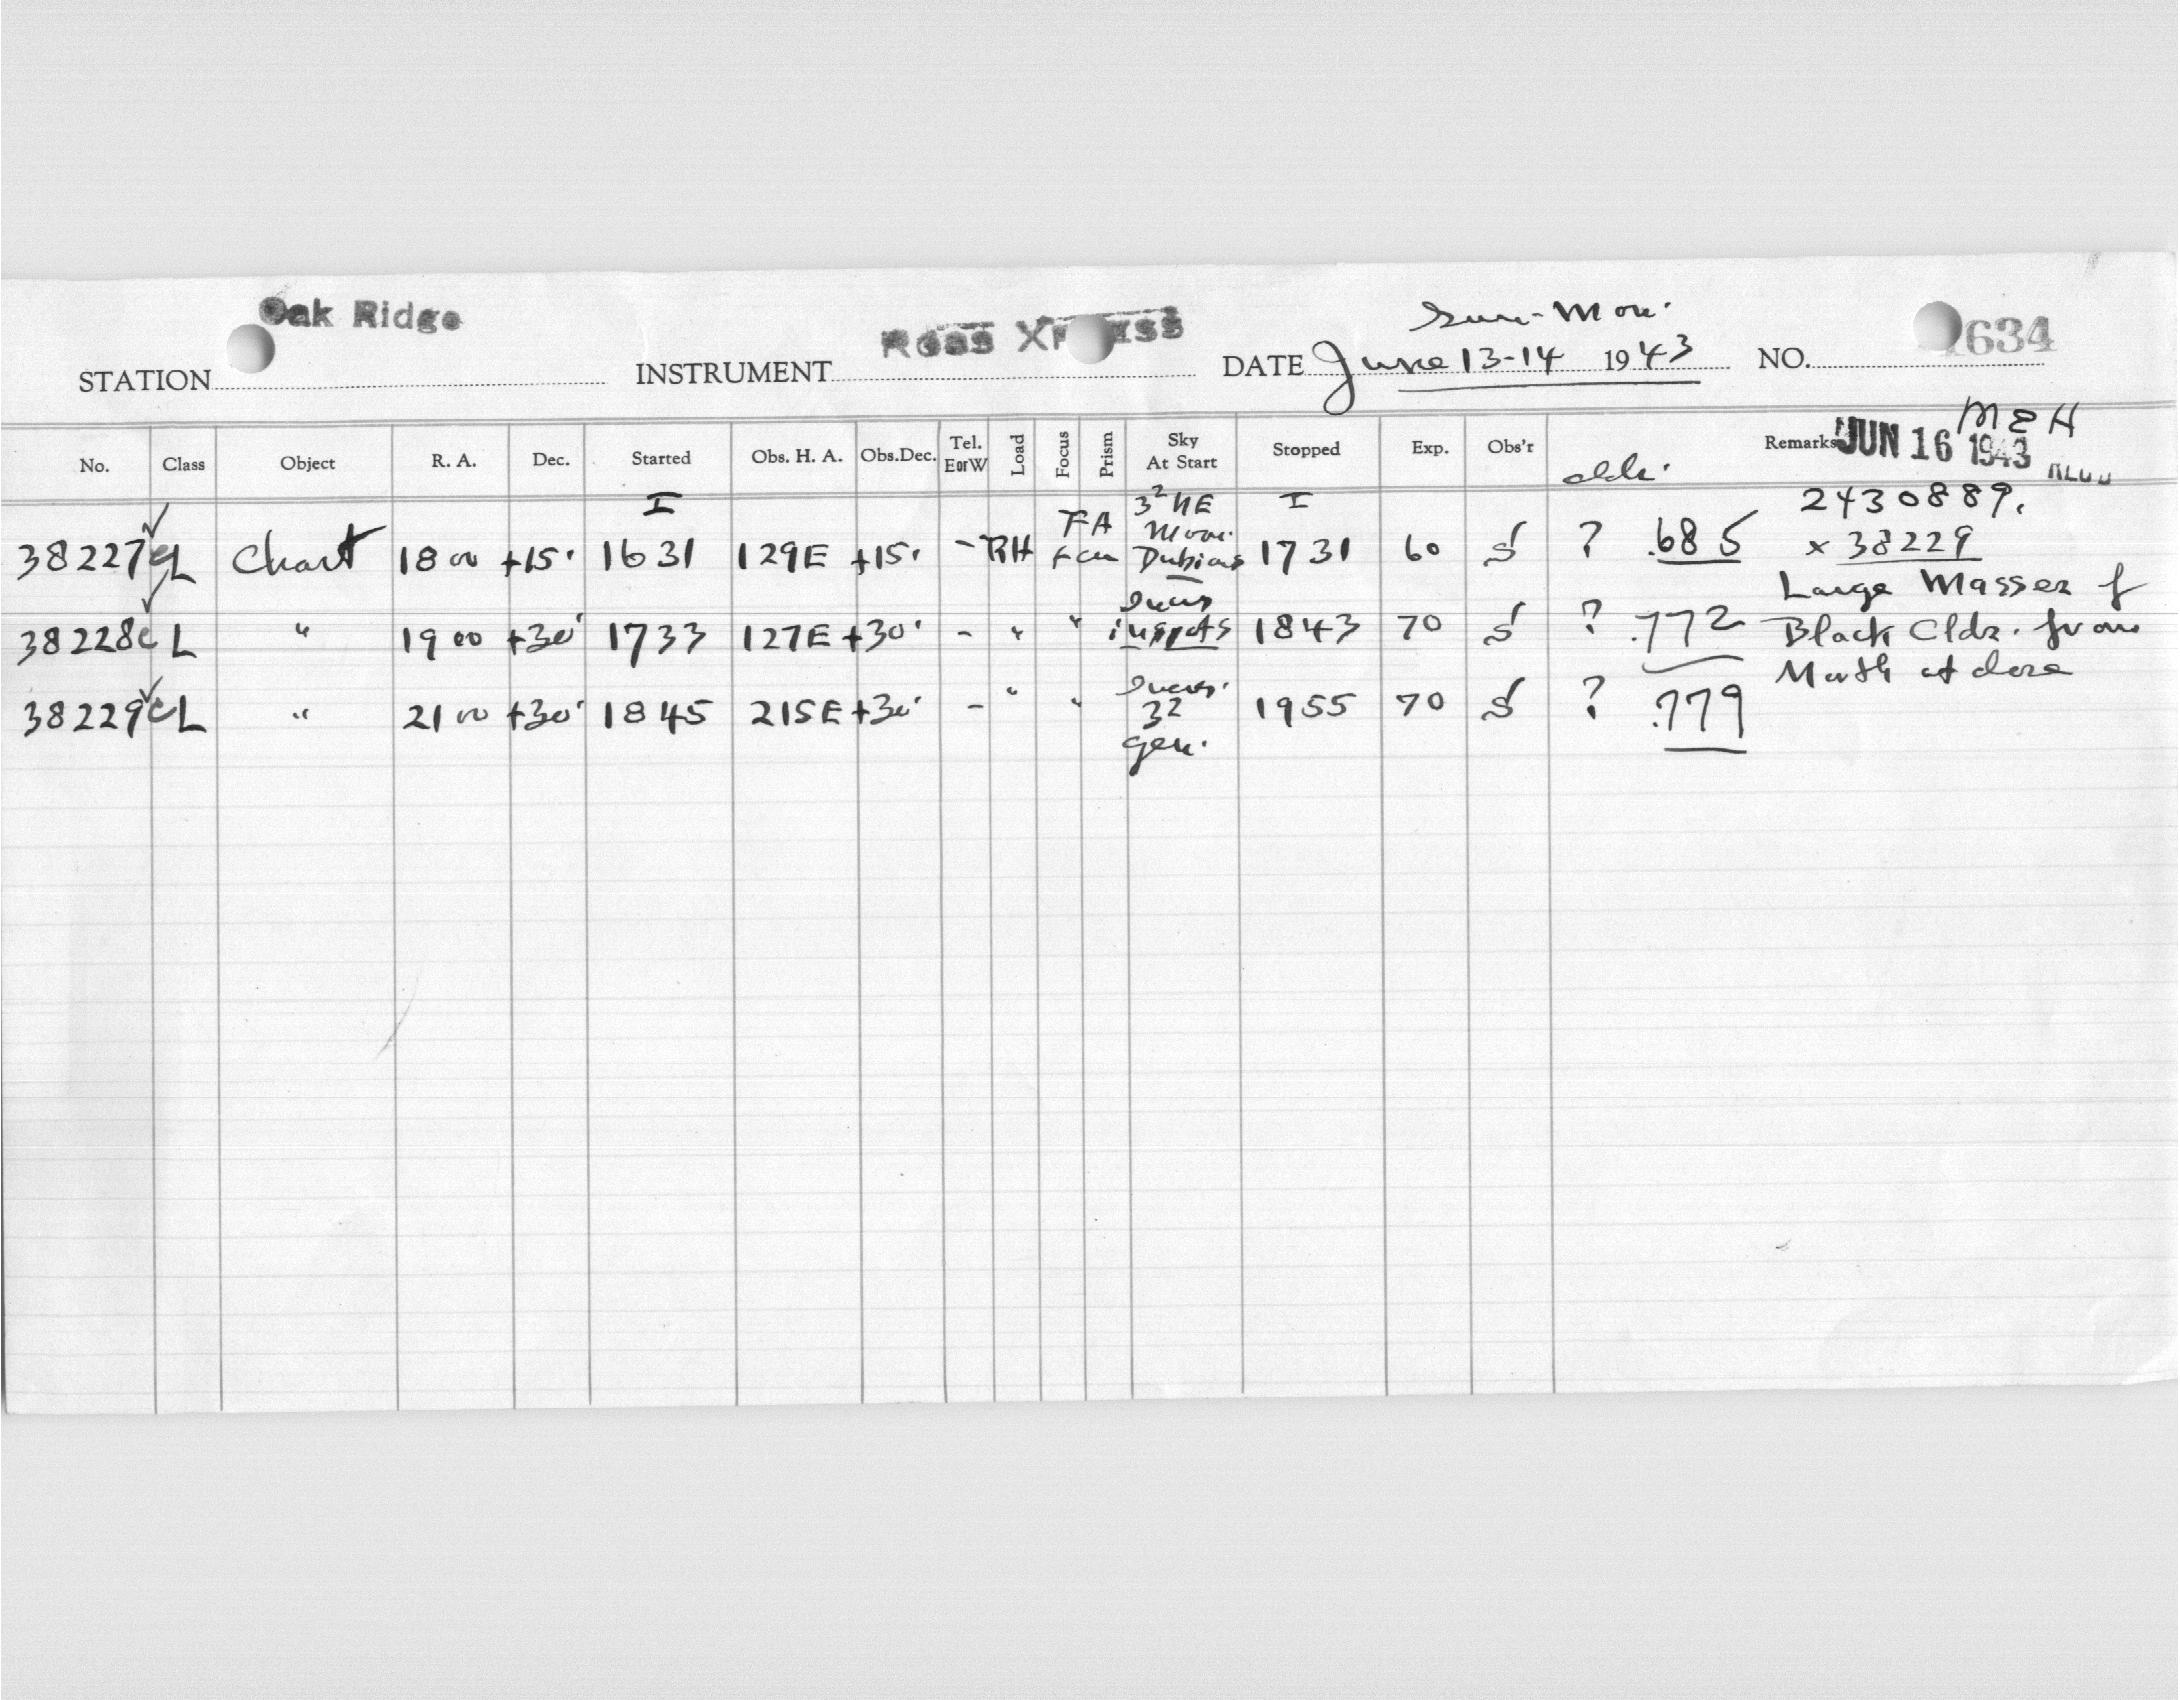 Oak Ridge
Sun-Mon.
STATION INSTRUMENT Ross DATE June 13-14 1943 NO. 1634
MEH
No. Class Object R. A. Dec. Started Obs. H. A. Obs.Dec. Tel. E or W Load Focus Prism Sky At Start Stopped Exp. Obs'r Remarks JUN 16 1943
I 3² NE I 2430889.
38227 L Chart 18 00 +15° 1631 129E +15° - RH FA Moon. Dubious 1731 60 S ? .685 x 38229
Large Masses of
38228 c L " 19 00 +30° 1733 127E +30° - " " in spots 1843 70 S ? .772 Black Clds. from
North at close
38229 c L " 21 00 +30° 1845 215E +30° - " " 3² gen. 1955 70 S ? .779